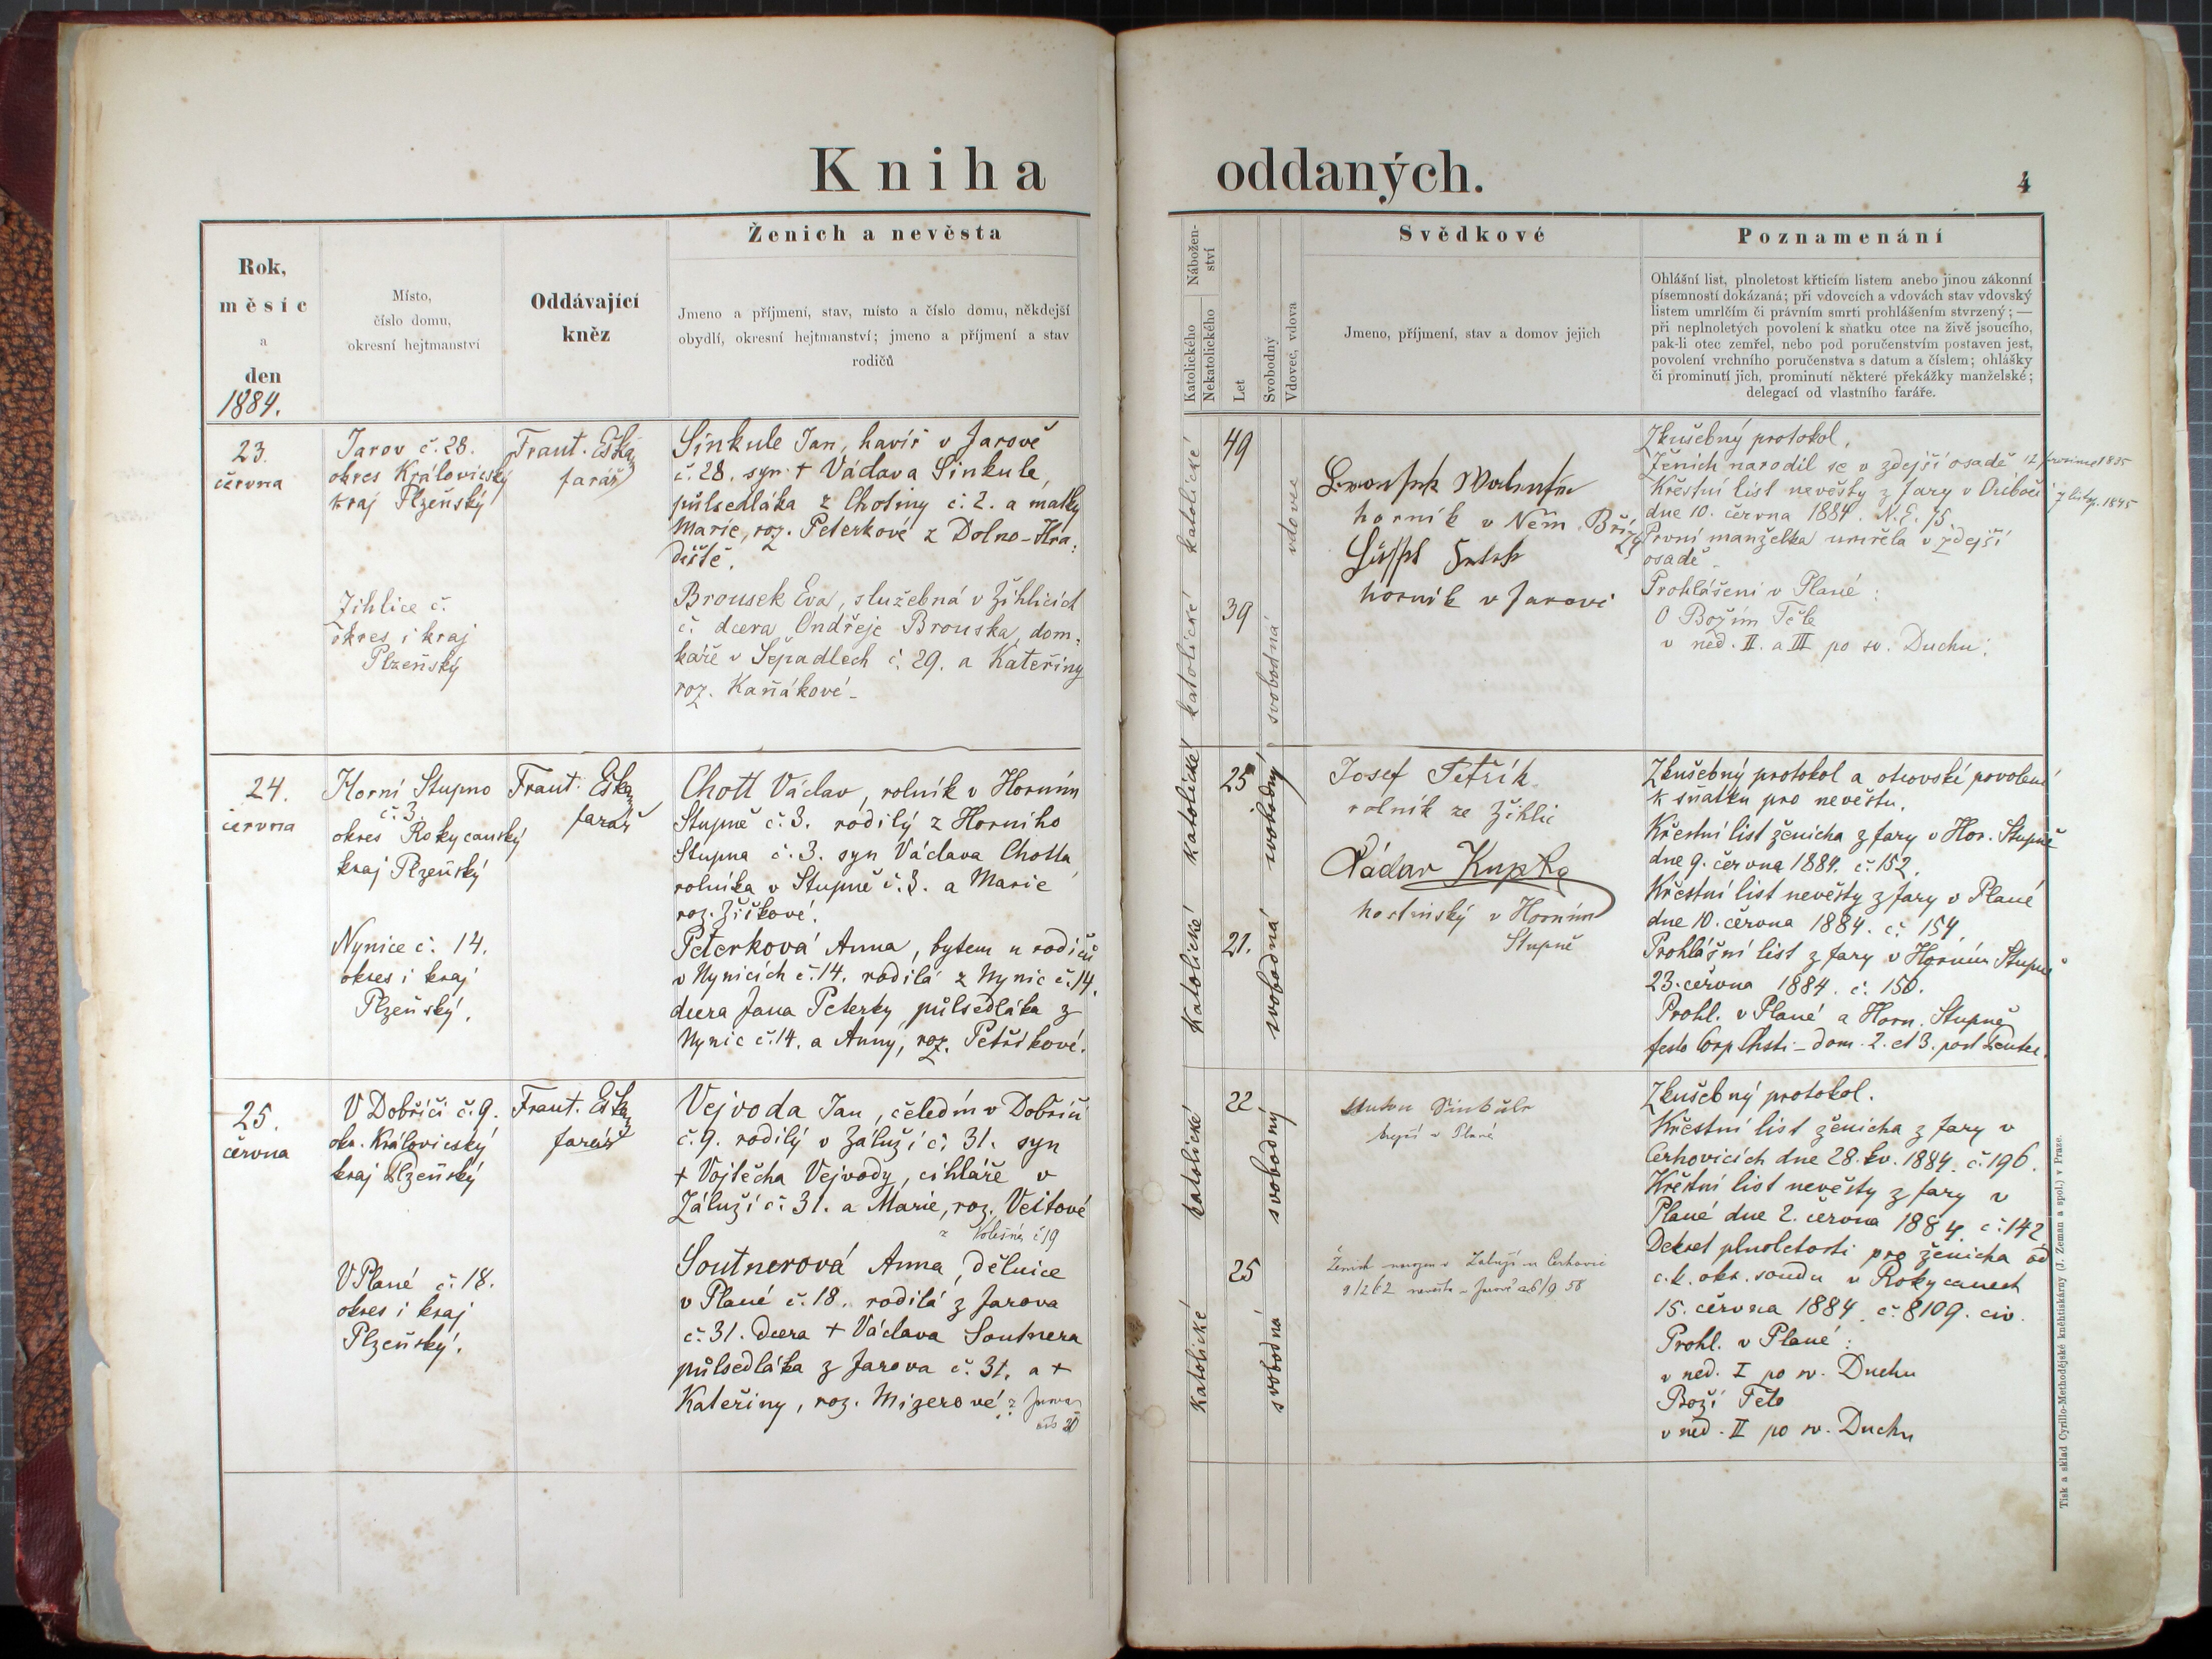 Kniha oddaných.
4
Rok,
měsíc
a
den
1884.
Místo,
číslo domu,
okresní hejtmanství
Oddávající
kněz
Ženich a nevěsta
Jmeno a příjmení, stav, místo a číslo domu, někdejší
obydlí, okresní hejtmanství; jmeno a příjmení a stav
rodičů
Nábožen-
ství
Katolického
Nekatolického
Let
Svobodný
Vdovec, vdova
Svědkové
Jmeno, příjmení, stav a domov jejich
Poznamenání
Ohlášní list, plnoletost křticím listem anebo jinou zákonní
písemností dokázaná; při vdovcích a vdovách stav vdovský
listem umrlčím či právním smrti prohlášením stvrzený; —
při neplnoletých povolení k sňatku otce na živě jsoucího,
pak-li otec zemřel, nebo pod poručenstvím postaven jest,
povolení vrchního poručenstva s datum a číslem; ohlášky
či prominutí jich, prominutí některé překážky manželské;
delegací od vlastního faráře.
23.
června
Jarov č. 28.
okres Kralovický
kraj Plzeňský
Frant. Eška
farář
Sinkule Jan, havíř v Jarově
č. 28. syn † Václava Sinkule,
půlsedláka z Chotiny č. 2. a matky
Marie, roz. Peterkové z Dolno-Hra-
diště.
Žihlice č.
okres i kraj
Plzeňský
Brousek Eva, služebná v Žihlicích
č. dcera Ondřeje Brouska, dom-
káře v Šepadlech č. 29. a Kateřiny
roz. Kaňákové.
katolické
49
vdovec
katolické
39
svobodná
horník v Něm. Bříze
horník v Jarovi
Zkušebný protokol.
Ženich narodil se v zdejší osadě
1835
Křestní list nevěsty z fary v
dne 10. června 1884. N.E. 75.
7 listop. 1845
První manželka umřela v zdejší
osadě.
Prohlášení v Plané:
O Božím Těle
v ned. II. a III po sv. Duchu.
24.
června
Horní Stupno
č. 3.
okres Rokycanský
kraj Plzeňský
Frant. Eška
farář
Chott Václav, rolník v Horním
Stupně č. 3. rodilý z Horního
Stupna č. 3. syn Václava Chotta
rolníka v Stupně č. 3. a Marie
roz. Žížkové.
Nynice č. 14.
okres i kraj
Plzeňský.
Peterková Anna, bytem u rodičů
v Nynicích č. 14. rodilá z Nynic č. 14.
dcera Jana Peterky, půlsedláka z
Nynic č. 14. a Anny, roz. Petříkové.
katolické
25
svobodný
katolické
21.
svobodná
Josef Petřík
rolník ze Žihlic
Václav Kupka
hostinský v Horním
Stupně
Zkušebný protokol a otcovské povolení
k sňatku pro nevěstu.
Křestní list ženicha z fary v Hor. Stupně
dne 9. června 1884. č. 152.
Křestní list nevěsty z fary v Plané
dne 10. června 1884. č. 154.
Prohlášní list z fary v Horním Stupně
23. června 1884. č. 150.
Prohl. v Plané a Horn. Stupně
festo Corp. Chsti – dom. 2. et 3. post Pentec.
25.
června
V Dobříči č. 9.
okr. Kralovický
kraj Plzeňský
Frant. Eška
farář
Vejvoda Jan, čeledín v Dobříči
č. 9. rodilý v Záluží č. 31. syn
† Vojtěcha Vejvody, cihláře v
Záluží č. 31. a Marie, roz. Veitové
z č 19
V Plané č. 18.
okres i kraj
Plzeňský.
Soutnerová Anna, dělnice
v Plané č. 18. rodilá z Jarova
č. 31. dcera † Václava Soutnera
půlsedláka z Jarova č. 31. a †
Kateřiny, roz. Migerové z Jarova
katolické
22
svobodný
katolické
25
svobodná
Anton Sinkule
krejčí v Plané
Ženich v Záluží u Cerhovic
9/12 62 nevěsta v Jarově 26/9 58
Zkušebný protokol.
Křestní list ženicha z fary v
Cerhovicích dne 28. kv. 1884. č. 196.
Křestní list nevěsty z fary v
Plané dne 2. června 1884. č. 142
Dekret plnoletosti pro ženicha od
c. k. okr. soudu v Rokycanech
15. června 1884. č. 8109. civ.
Prohl. v Plané:
v ned. I po sv. Duchu
Boží Tělo
v ned. II po sv. Duchu
Tisk a sklad Cyrillo-Methodějské knihtiskárny (J. Zeman a spol.) v Praze.